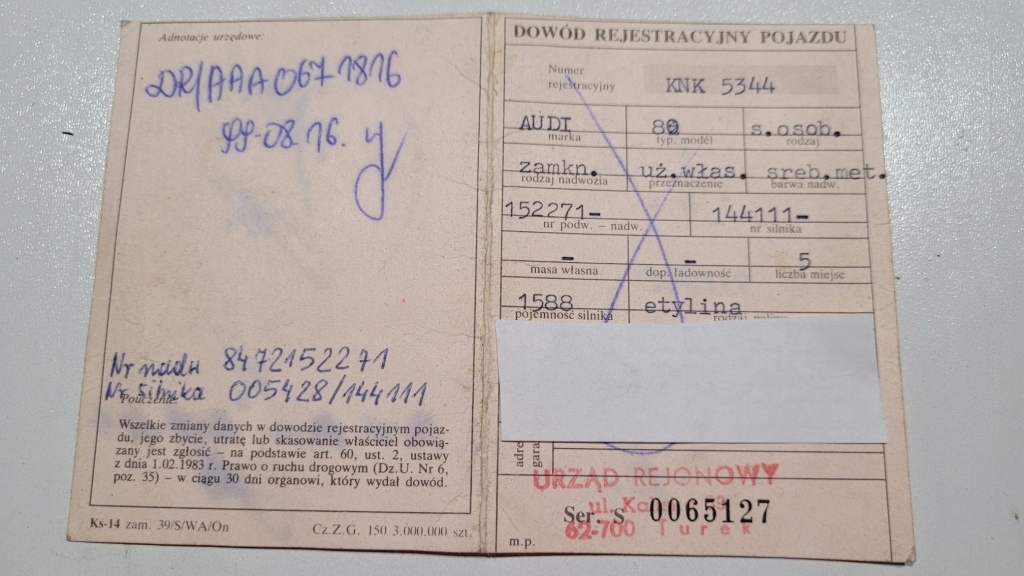 Adnotacje urzędowe:
DR/AAA0671816
99-08.16.
Nr nadw 8472152271
Nr silnika 005428/144111
Pouczenie:
Wszelkie zmiany danych w dowodzie rejestracyjnym pojaz-
du, jego zbycie, utratę lub skasowanie właściciel obowią-
zany jest zgłosić – na podstawie art. 60, ust. 2, ustawy
z dnia 1.02.1983 r. Prawo o ruchu drogowym (Dz.U. Nr 6,
poz. 35) – w ciągu 30 dni organowi, który wydał dowód.
Ks-14 zam. 39/S/WA/On
Cz.Z.G. 150 3.000.000 szt.
DOWÓD REJESTRACYJNY POJAZDU
Numer
rejestracyjny
KNK 5344
AUDI 80 s.osob.
marka typ, model rodzaj
zamkn. uż.włas. sreb.met.
rodzaj nadwozia przeznaczenie barwa nadw.
152271- 144111-
nr podw. – nadw. nr silnika
- - 5
masa własna dop. ładowność liczba miejsc
1588 etylina
pojemność silnika rodzaj paliwa
URZĄD REJONOWY
ul.
62-700 Turek
Ser. S 0065127
m.p.